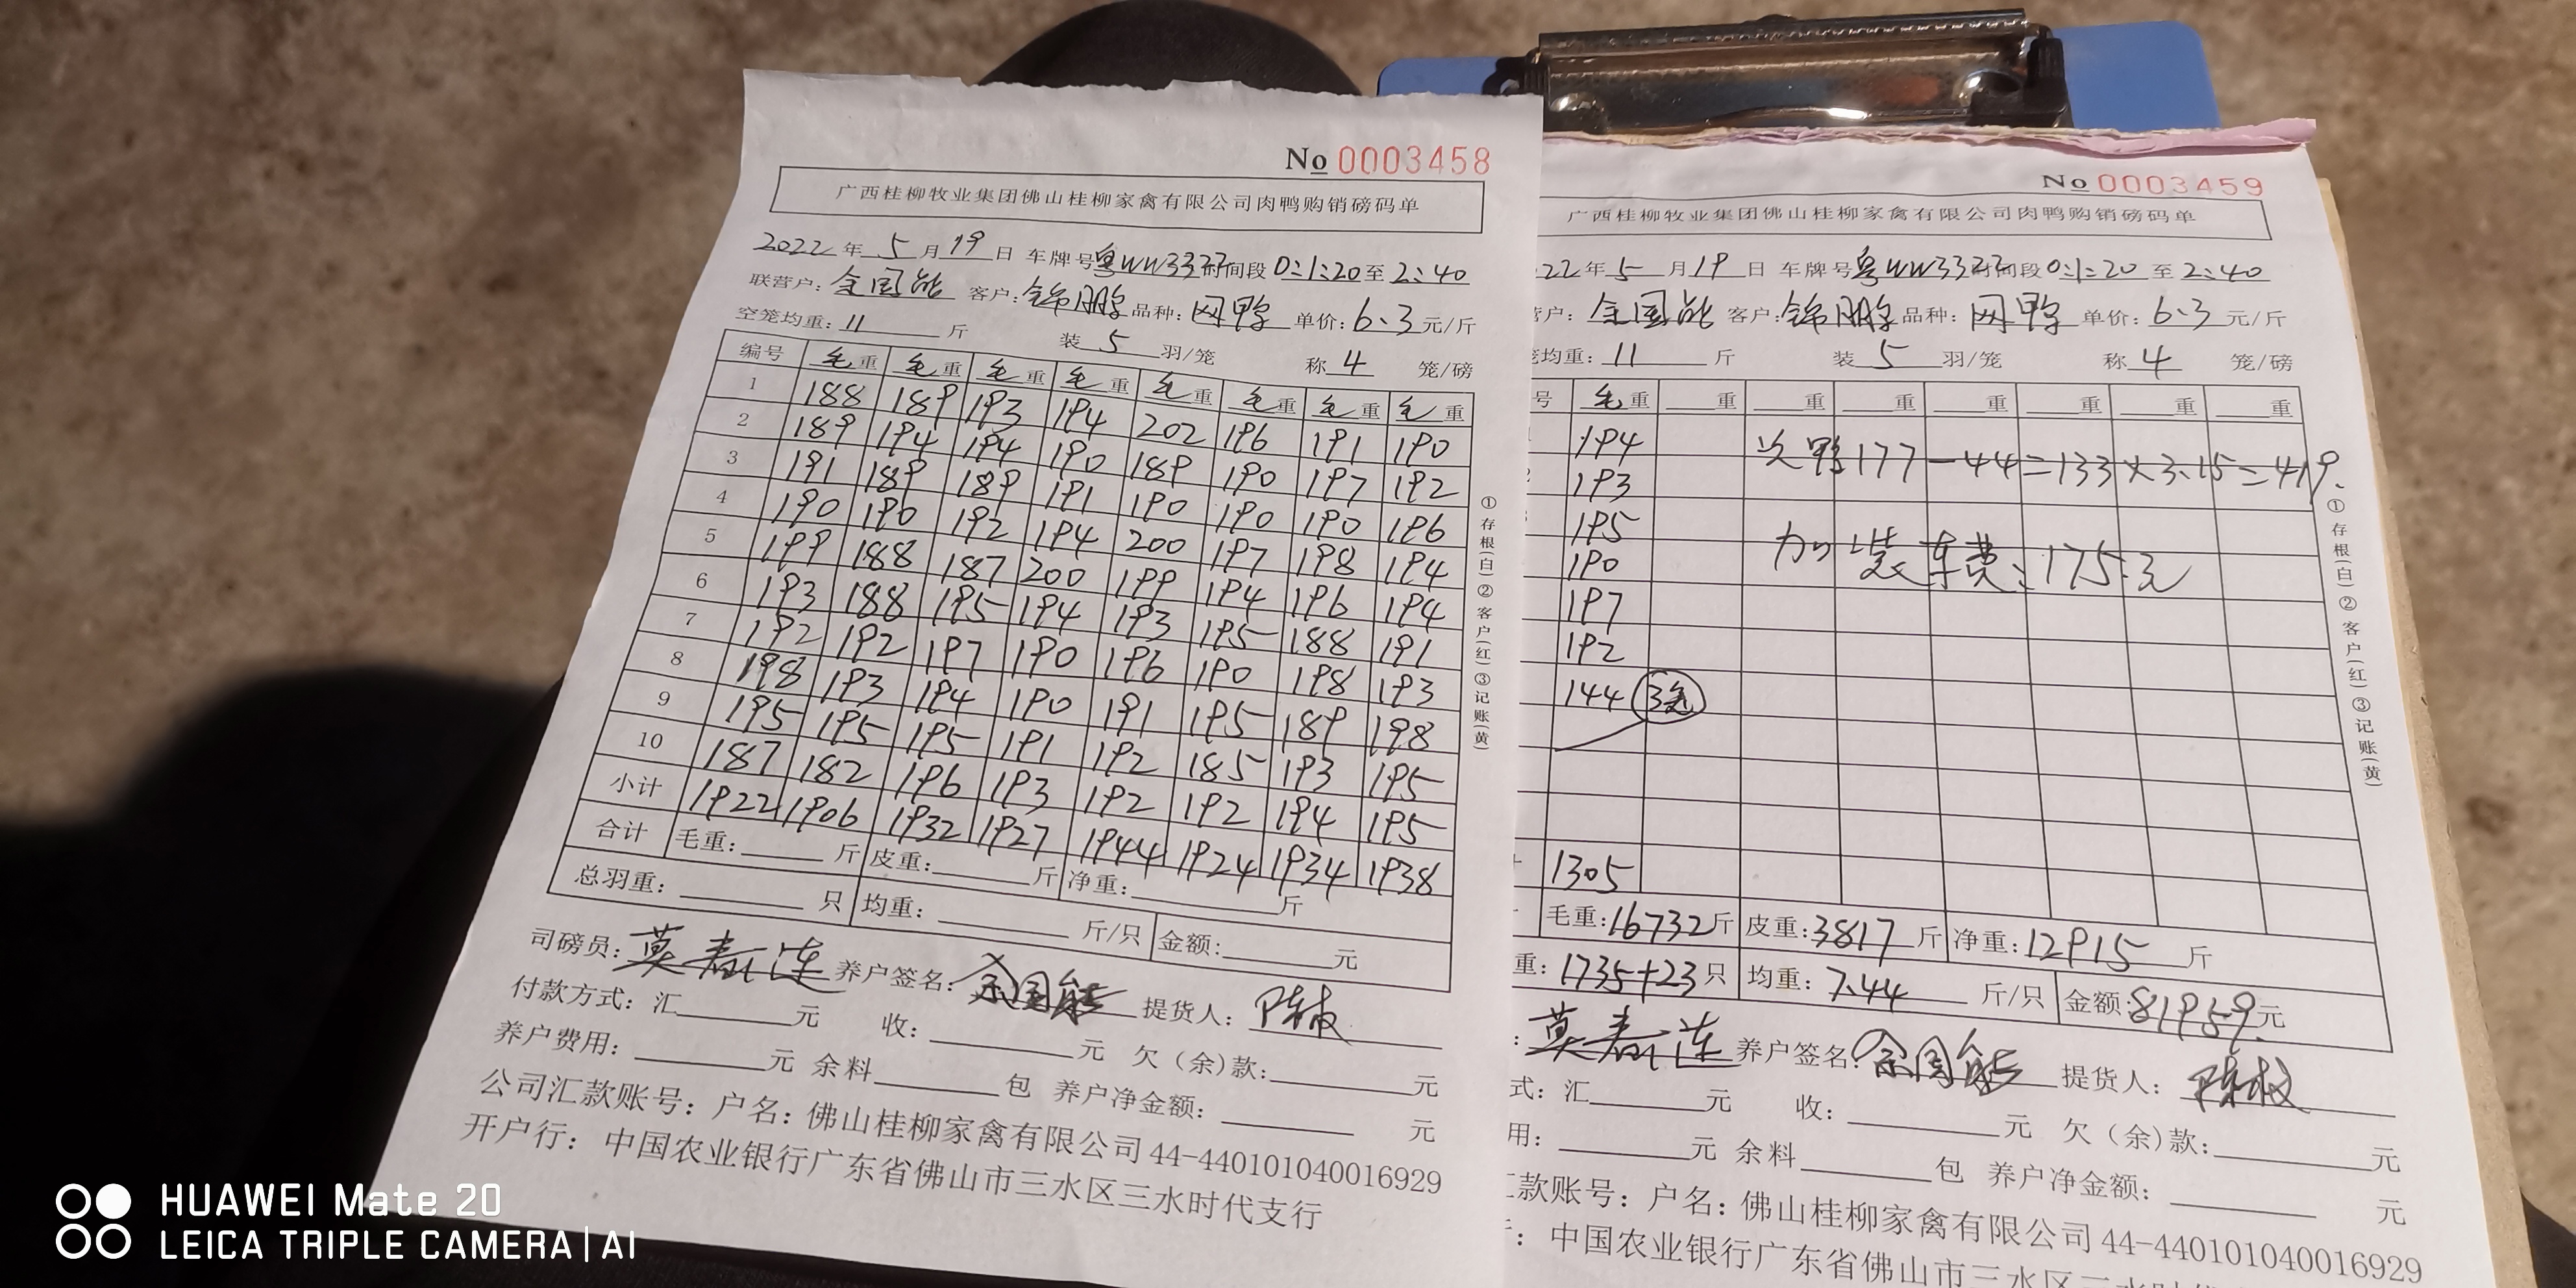 No 0003458
广西桂柳牧业集团佛山桂柳家禽有限公司肉鸭购销磅码单
2022 年 5 月 19 日 车牌号 粤WW3327 时间段 0:1:20 至 2:40
联营户: 余国能 客户: 锦鹏 品种: 网鸭 单价: 6.3 元/斤
空笼均重: 11 斤 装 5 羽/笼 称 4 笼/磅
编号 毛重 毛重 毛重 毛重 毛重 毛重 毛重 毛重
1 188 189 193 194 202 196 191 190
2 189 194 194 190 189 190 197 192
3 191 189 189 191 190 190 190 196
4 190 190 192 194 200 197 198 194
5 199 188 187 200 199 194 196 194
6 193 188 195 194 193 195 188 191
7 192 192 197 190 196 190 198 193
8 198 193 194 190 191 195 189 198
9 195 195 195 191 192 185 193 195
10 187 182 196 193 192 192 194 195
小计 1922 1906 1932 1927 1944 1924 1934 1938
合计 毛重: 斤 皮重: 斤 净重: 斤
总羽重: 只 均重: 斤/只 金额: 元
司磅员: 莫春连 养户签名: 余国能 提货人:
付款方式: 汇 元 收: 元 欠(余)款: 元
养户费用: 元 余料 包 养户净金额: 元
公司汇款账号: 户名: 佛山桂柳家禽有限公司 44-440101040016929
开户行: 中国农业银行广东省佛山市三水区三水时代支行
①存根(白)②客户(红)③记账(黄)
No 0003459
广西桂柳牧业集团佛山桂柳家禽有限公司肉鸭购销磅码单
22 年 5 月 19 日 车牌号 粤WW3327 时间段 0:1:20 至 2:40
户: 余国能 客户: 锦鹏 品种: 网鸭 单价: 6.3 元/斤
均重: 11 斤 装 5 羽/笼 称 4 笼/磅
号 毛重 重 重 重 重 重 重 重
194 次鸭 177-44=133×3.15=419.
193
195 加装车费:175元
190
197
192
144 3笼
1305
毛重: 16732 斤 皮重: 3817 斤 净重: 12915 斤
重: 1735+23 只 均重: 7.44 斤/只 金额: 81959. 元
: 莫春连 养户签名: 余国能 提货人:
式: 汇 元 收: 元 欠(余)款: 元
用: 元 余料 包 养户净金额: 元
汇款账号: 户名: 佛山桂柳家禽有限公司 44-440101040016929
: 中国农业银行广东省佛山市三水区三水时
①存根(白)②客户(红)③记账(黄)
HUAWEI Mate 20
LEICA TRIPLE CAMERA | AI